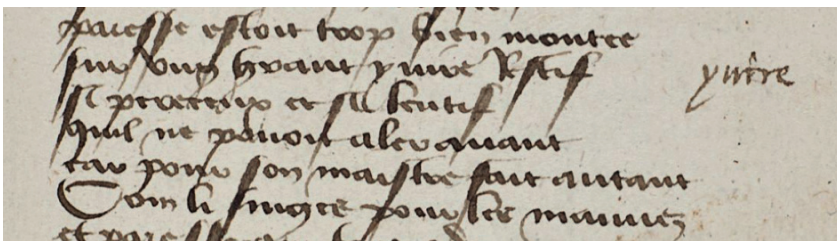 paresse estoit trop bien montee
sur ung grant yuire Restif
sy perecenx et sy lentif
quil ne pouoit aler auant
car pour son maistre fait autant
Com li singes pour les mauuez
et paresse
yuire